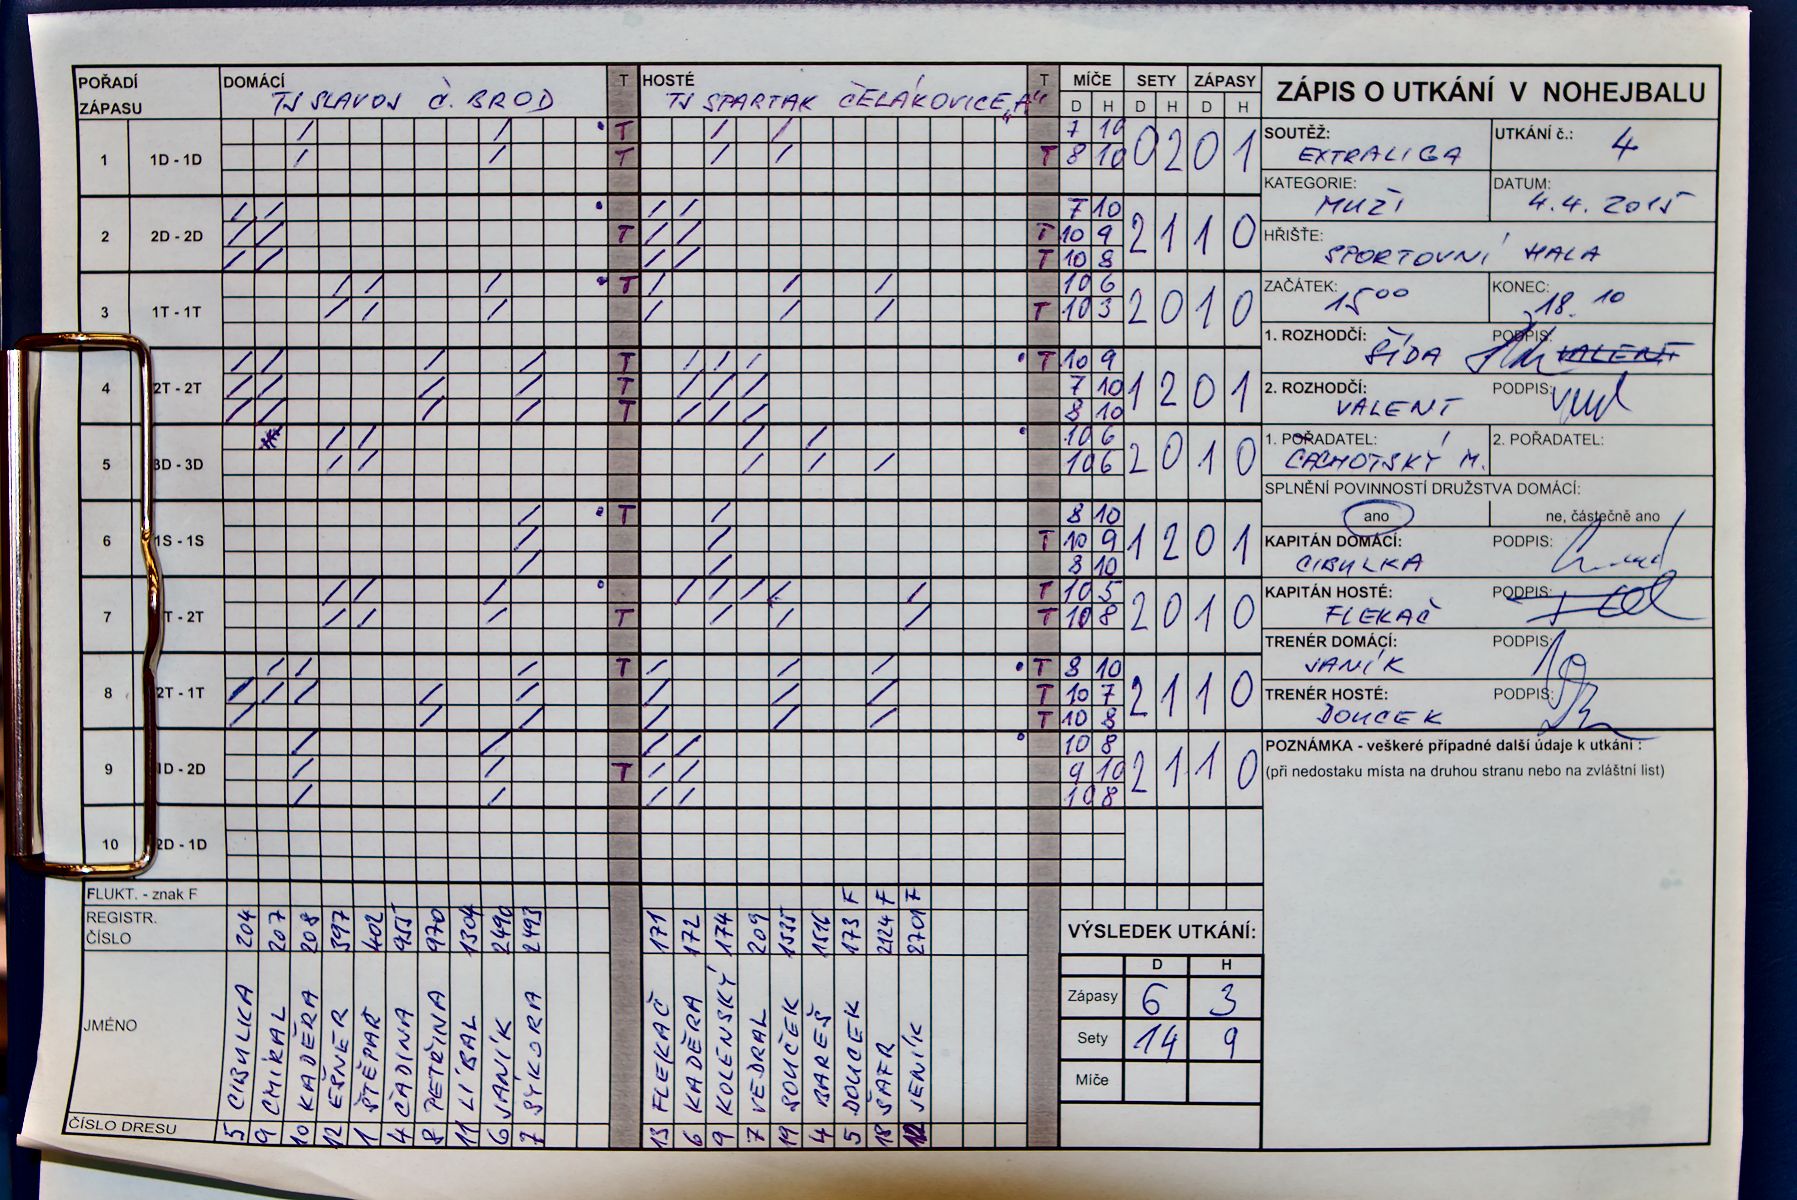 POŘADÍ ZÁPASU DOMÁCÍ T HOSTÉ T MÍČE SETY ZÁPASY
TJ SLAVOJ Č. BROD TJ SPARTAK ČELÁKOVICE „A“
D H D H D H
1 1D - 1D T 7 10 0 2 0 1
T T 8 10
2 2D - 2D 7 10 2 1 1 0
T T 10 9
T 10 8
3 1T - 1T T 10 6 2 0 1 0
T 10 3
4 2T - 2T T T 10 9 1 2 0 1
T 7 10
T 8 10
5 3D - 3D 10 6 2 0 1 0
10 6
6 1S - 1S T 8 10 1 2 0 1
T 10 9
8 10
7 T - 2T T 10 5 2 0 1 0
T T 10 8
8 2T - 1T T T 8 10 2 1 1 0
T 10 7
T 10 8
9 1D - 2D 10 8 2 1 1 0
T 9 10
10 8
10 2D - 1D
FLUKT. - znak F F F F
REGISTR. ČÍSLO 204 207 208 397 402 955 970 1304 2490 2493 171 172 174 209 1535 1516 173 2124 2701
JMÉNO CIBULKA CHÝRAL KADĚRA EŠNER ŠTĚPAŘ ČADINA PETŘINA LÍBAL JANÍK SÝKORA FLEKAČ KADĚRA KOLENSKÝ VEDRAL SOUČEK BAREŠ DOUCEK ŠAFR JENÍK
ČÍSLO DRESU 5 9 10 12 1 4 8 11 6 7 13 6 9 7 19 4 5 18 12
VÝSLEDEK UTKÁNÍ:
D H
Zápasy 6 3
Sety 14 9
Míče
ZÁPIS O UTKÁNÍ V NOHEJBALU
SOUTĚŽ: EXTRALIGA UTKÁNÍ č.: 4
KATEGORIE: MUŽI DATUM: 4.4. 2015
HŘIŠTĚ: SPORTOVNÍ HALA
ZAČÁTEK: 15 00 KONEC: 18. 10
1. ROZHODČÍ: ŠÍDA PODPIS: VALENT
2. ROZHODČÍ: VALENT PODPIS:
1. POŘADATEL: CACHOTSKÝ M. 2. POŘADATEL:
SPLNĚNÍ POVINNOSTÍ DRUŽSTVA DOMÁCÍ:
ano ne, částečně ano
KAPITÁN DOMÁCÍ: CIBULKA PODPIS:
KAPITÁN HOSTÉ: FLEKAČ PODPIS:
TRENÉR DOMÁCÍ: JANÍK PODPIS:
TRENÉR HOSTÉ: DOUCEK PODPIS:
POZNÁMKA - veškeré případné další údaje k utkání :
(při nedostaku místa na druhou stranu nebo na zvláštní list)